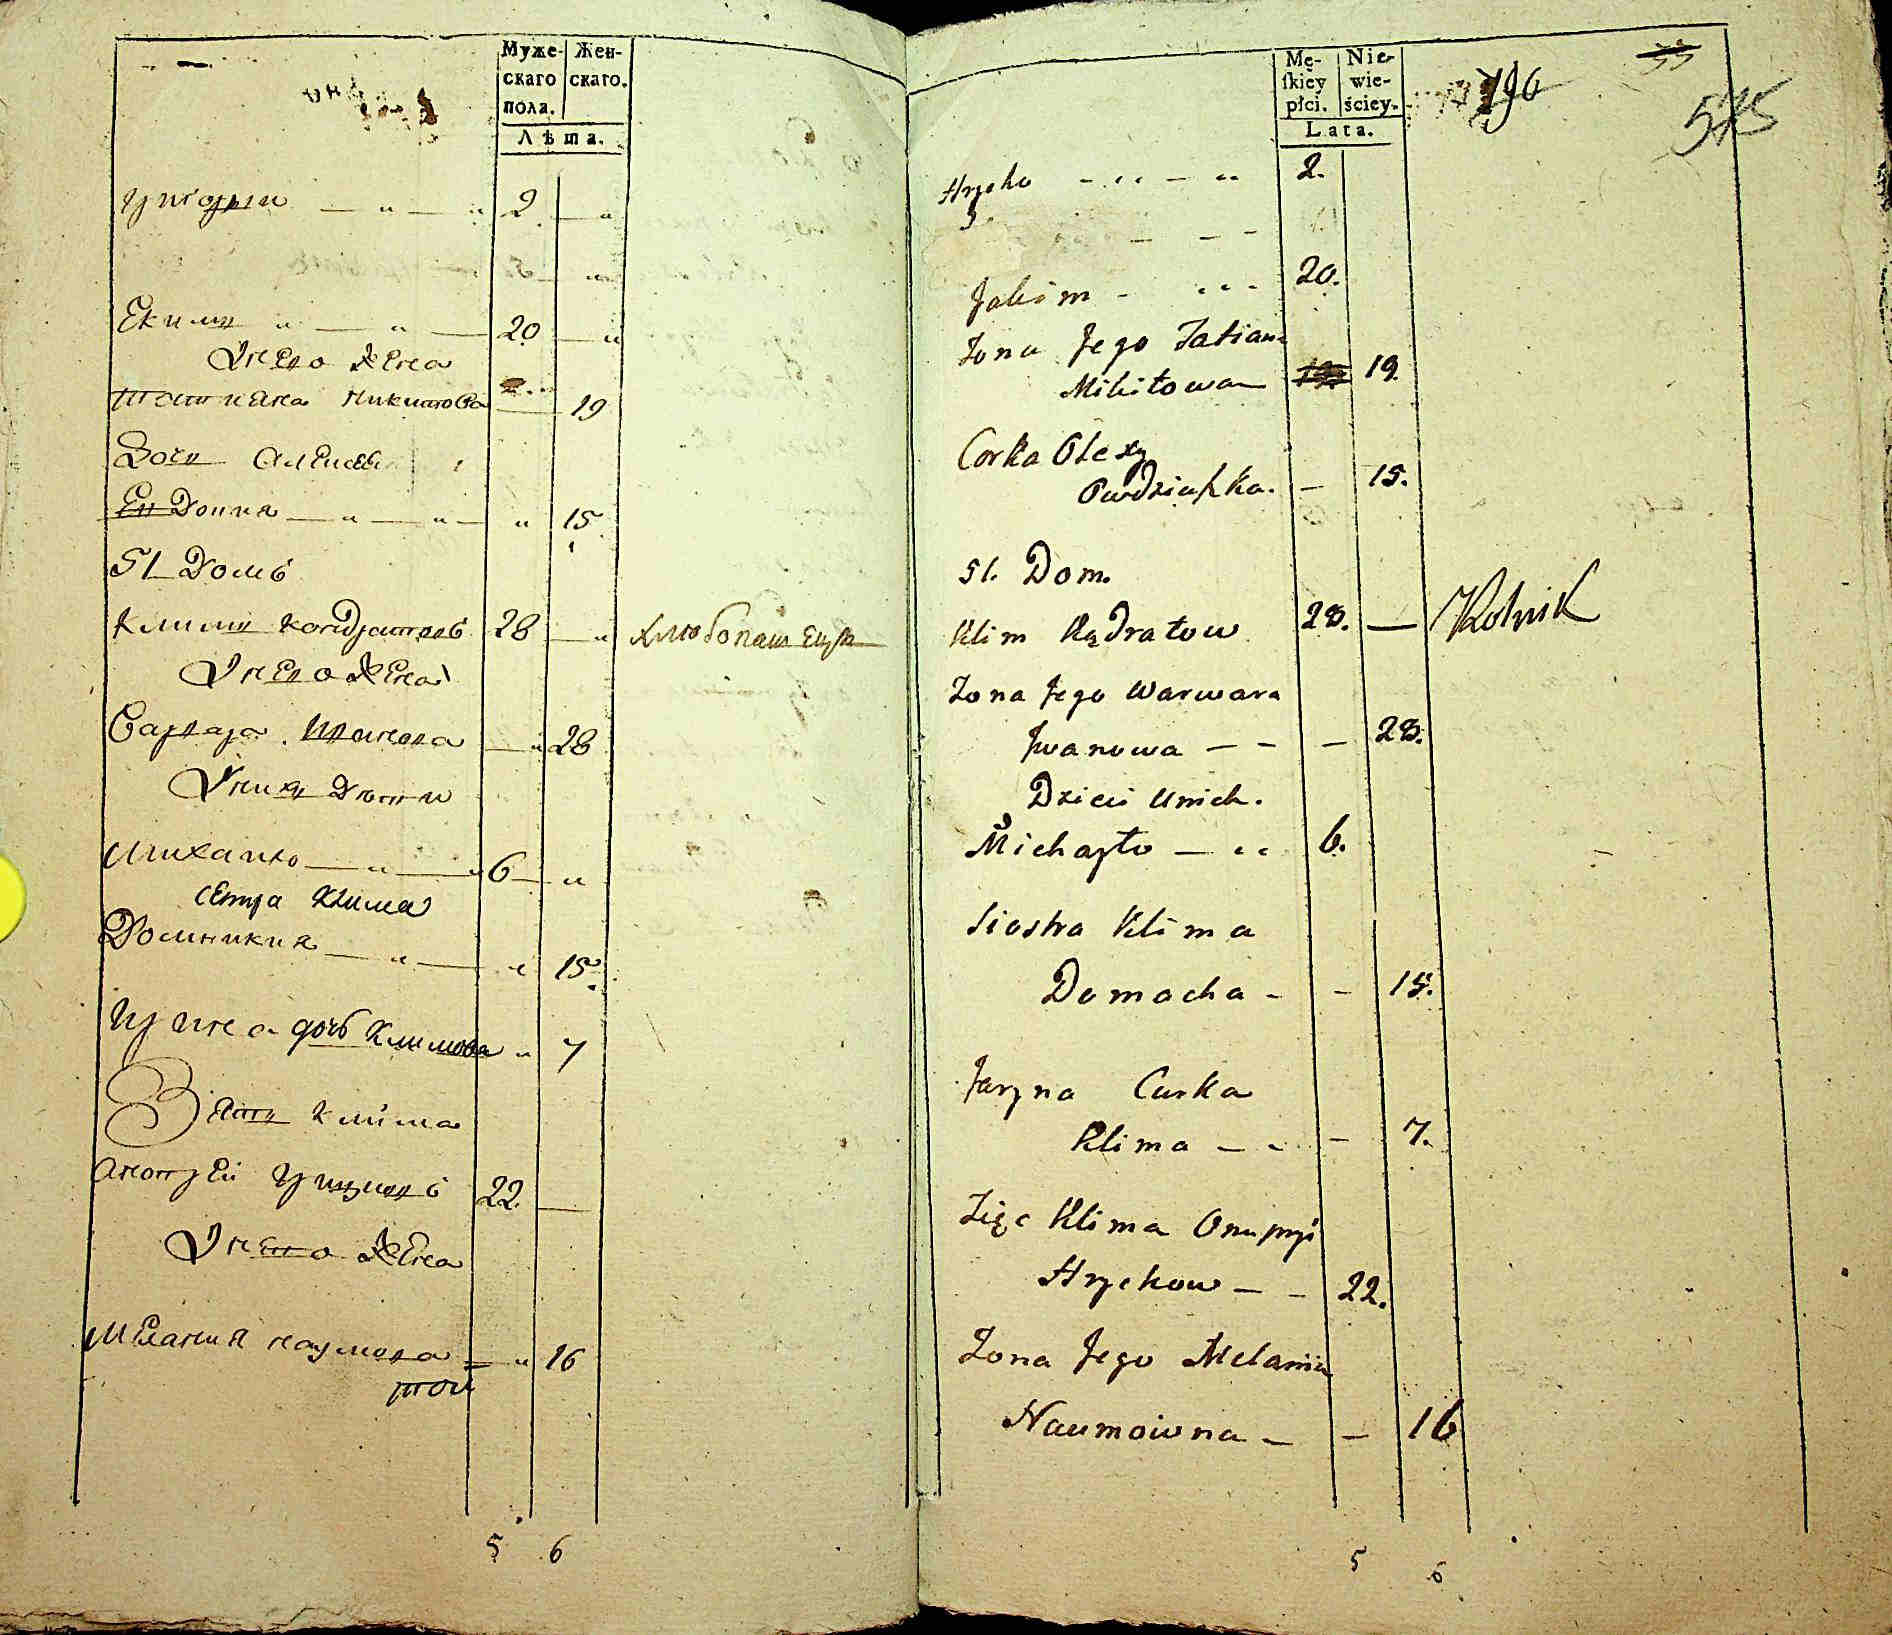 Муже- Жен-
скаго скаго.
пола.
Лѣта.
Григорій — „ — „ 2 — „
Екимъ „ — „ — 20 — „
У него жена
Татияна Никитова — 19
Дочь Алексея
Евдокия — „ — „ — „ 15
51 Домъ
Климъ Кондратовъ 28 — „ хлебопашецъ
У него жена
Варвара Иванова — „ 28
У нихъ дѣти
Михайло — „ — „ 6 — „
сестра Клима
Домникия — „ — „ 15
Ирина дочь Климова „ 7
Зять Клима
Анотрей Грицковъ 22 —
У него жена
Мелания Наумова — „ 16
5 6
Mę- Nie-
skiey wie-
płci. ściey.
Lata.
196
575
Hryćko - „ - „ 2.
Jakim - „ - 20.
Żona Jego Tatiana
Mikitowa 19.
Corka Olexy
Owdziuszka. — 15.
51. Dom.
Klim Kądratow 28. — Rolnik
Żona Jego Warwara
Jwanowa — — — 28.
Dzieci Unich.
Michayło — „ 6.
Siostra Klima
Domacha - - 15.
Jaryna Curka
Klima — - — 7.
Zięć Klima Onuprji
Hryckow — - 22.
Żona Jego Melania
Naumowna — — 16
5 6